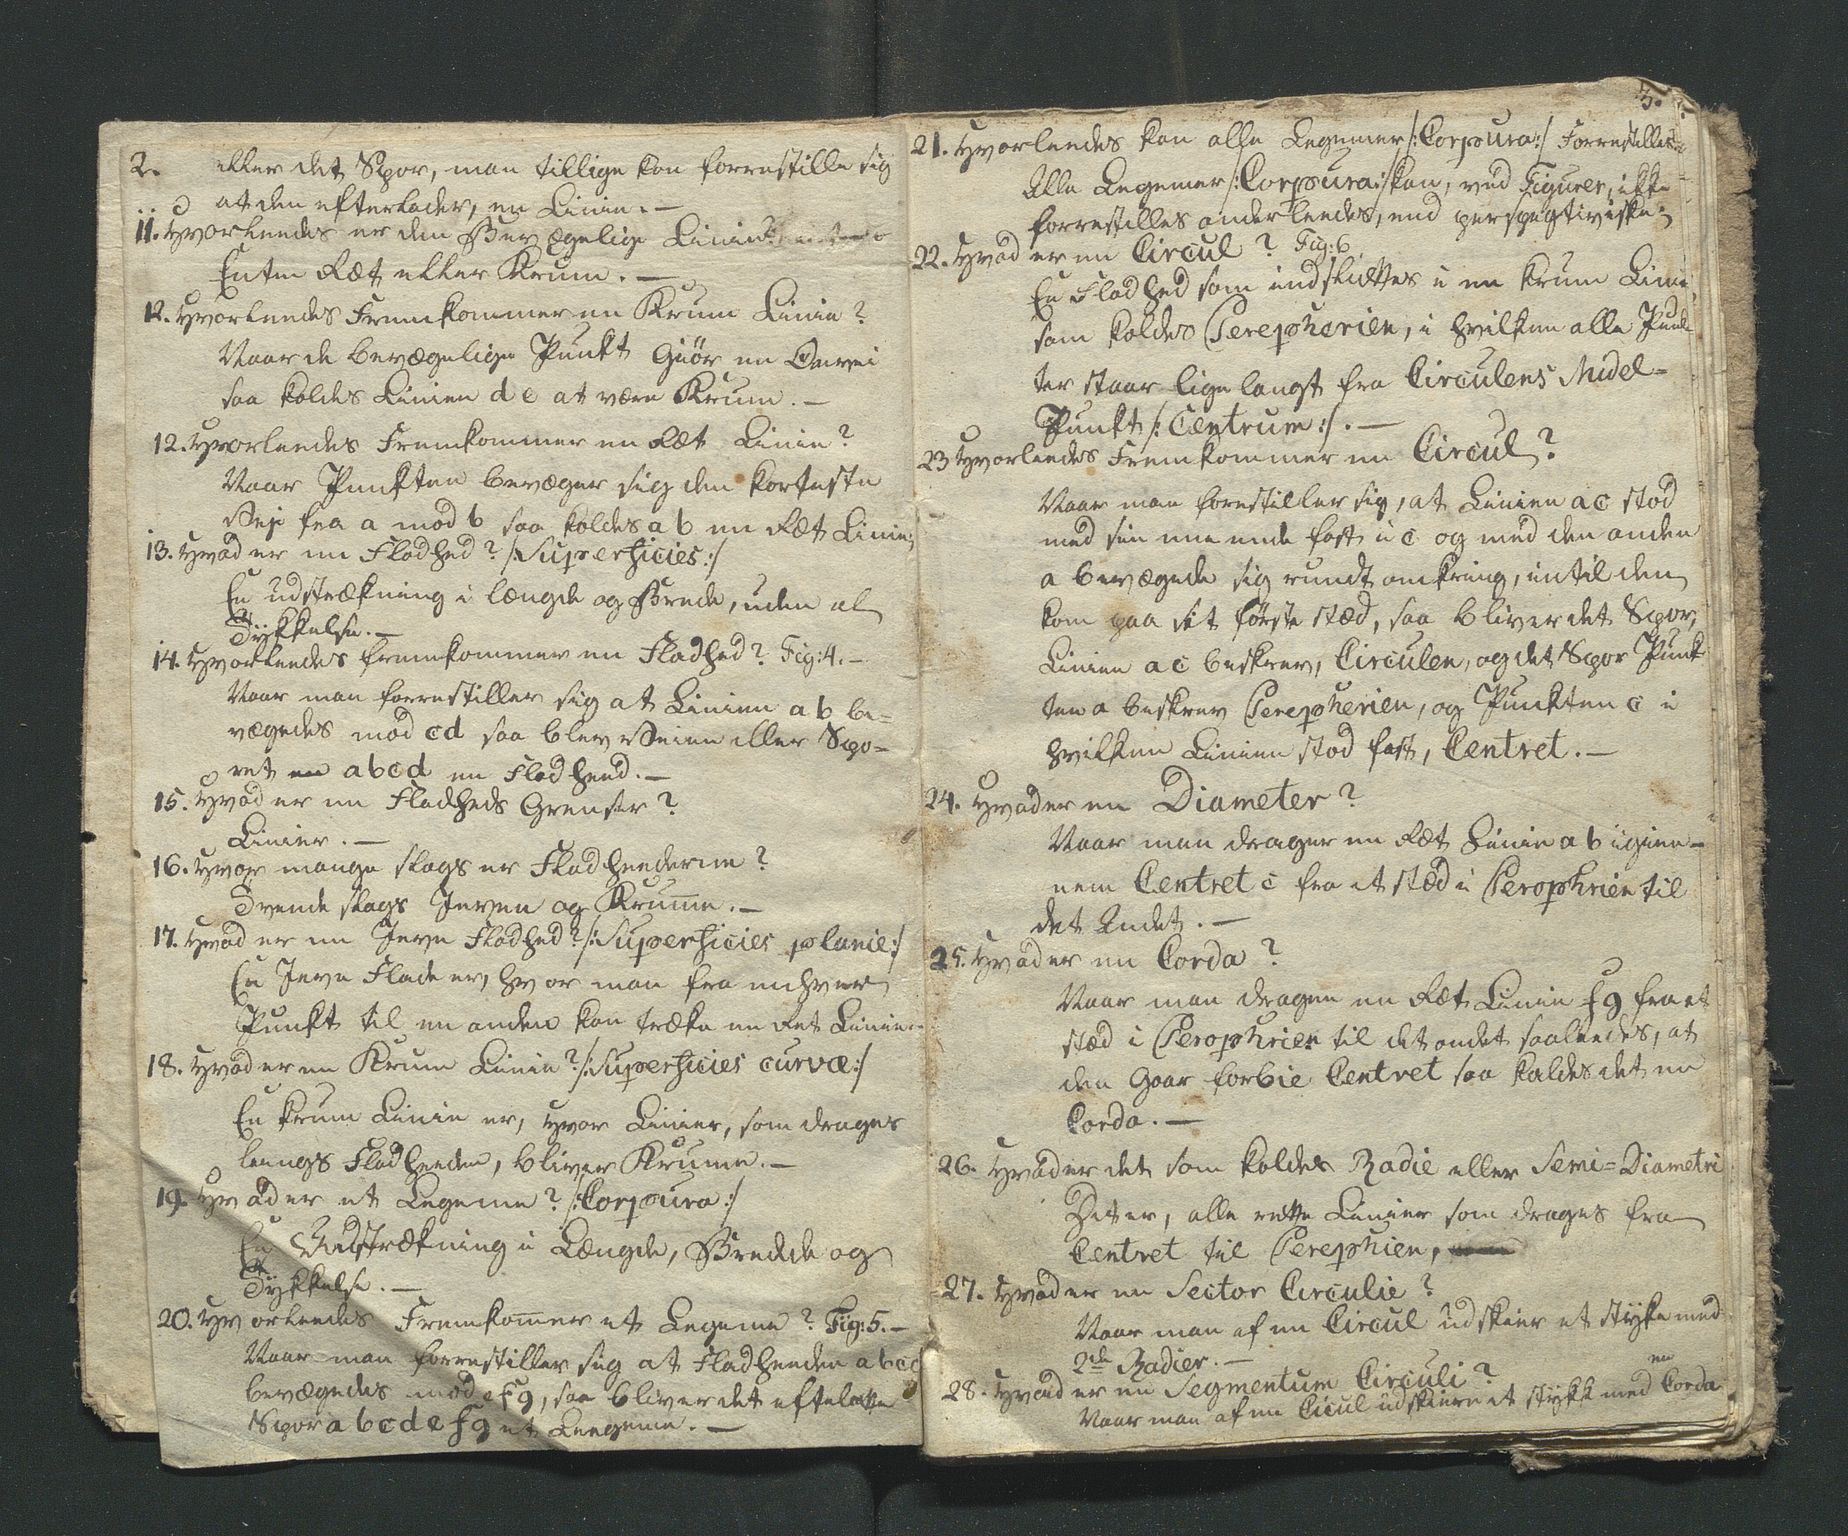 2.
eller det Spor, man tillige kan forrestille sig
at den efterlader, en Linie. —
11. Hvorleedes er den Bevægelige Linie?
Enten Ræt eller Krum. —
12. Hvorleedes Fremkommer en Krum Linie?
Naar de bevægelige Punkt Giör en Omvei
saa kaldes Linien d e at være Krum. —
12. Hvorleedes Fremkommer en Ræt Linie?
Naar Punkten bevæger sig den korteste
Vej fra a mod b saa kaldes a b en Ræt Linie;
13. Hvad er en Fladhed? /:Superficies:/
En udstrækning i længde og Brede, uden al
Tykkelse. —
14. Hvorleedes fremkommer en Fladhed? Fig: 4. —
Naar man forrestiller sig at Linien a b be=
vægedes mod cd saa blev Veien eller Spo=
ret en abcd en Fladheed. —
15. Hvad er en Fladheds Grenser?
Linier. —
16. Hvor mange slags er Fladheederne?
Tvende slags Jeven og Krumme. —
17. Hvad er en Jevn Fladhed? /:Superficies planie:/
En Jevn Flade er, hvor man fra enhver
Punkt til en anden kan træke en Ret Linie.
18. Hvad er en Krum Linie? /:Superficies curvæ:/
En krum Linie er, hvor Linier, som drages
leengs Fladheeden, bliver Krumme. —
19. Hvad er et Legeme? /:Corpoura:/
En Udstrækning i Længde, Bredde og
Tykkelse. —
20. Hvorleedes Fremkommer et Legeme? Fig: 5. —
Naar man forrestiller sig at Fladheeden abcd
bevægedes mod efg, saa bliver det efterlatte
Spor abcdefg et Leegeme. —
3.
21. Hvorleedes kan alle Legemer /:Corpoura:/ Forrestilles
Alle Legemer /:Corpoura:/ kan, ved Figurer, ikke
forrestilles anderleedes, end perspegtiviske;
22. Hvad er en Circul? Fig: 6
En Fladhed som indsluttes i en krum Linie
som kaldes Perepherien, i hvilken alle Punk
ter staar lige langt fra Circulens Midel=
Punkt /:Centrum:/. —
23 Hvorleedes Fremkommer en Circul?
Naar man forestiller sig, at Linien ac stod
med sin ene ende fast i c og med den anden
a bevægede sig rundt omkring, intil den
kom paa sit förste stæd, saa bliver det Spor,
Linien ac beskrev, Circulen, og det Spor Punk
ten a beskrev Perepherien, og Punkten c i
hvilken Linien stod fast, Centret. —
24. Hvad er en Diameter?
Naar man drager en Ræt Linie ab igien=
nem Centret c fra et stæd i Perophrien til
det Andet. —
25. Hvad er en Corda?
Naar man dragen en Ræt Linie fg fra et
stæd i Perophrien til det andet saaleedes, at
den Gaar forbie Centret saa kaldes det en
Corda. —
26. Hvad er det som kaldes Radie eller Semi=Diametri
Det er, alle rette Linier som drages fra
Centret til Perephien,
27. Hvad er en Sector Circulie?
Naar man af en Circul udskier et styke med
2de Radier. —
28. Hvad er en Segmentum Circuli?
Naar man af en Cicul udskiere et stykke med en Corda